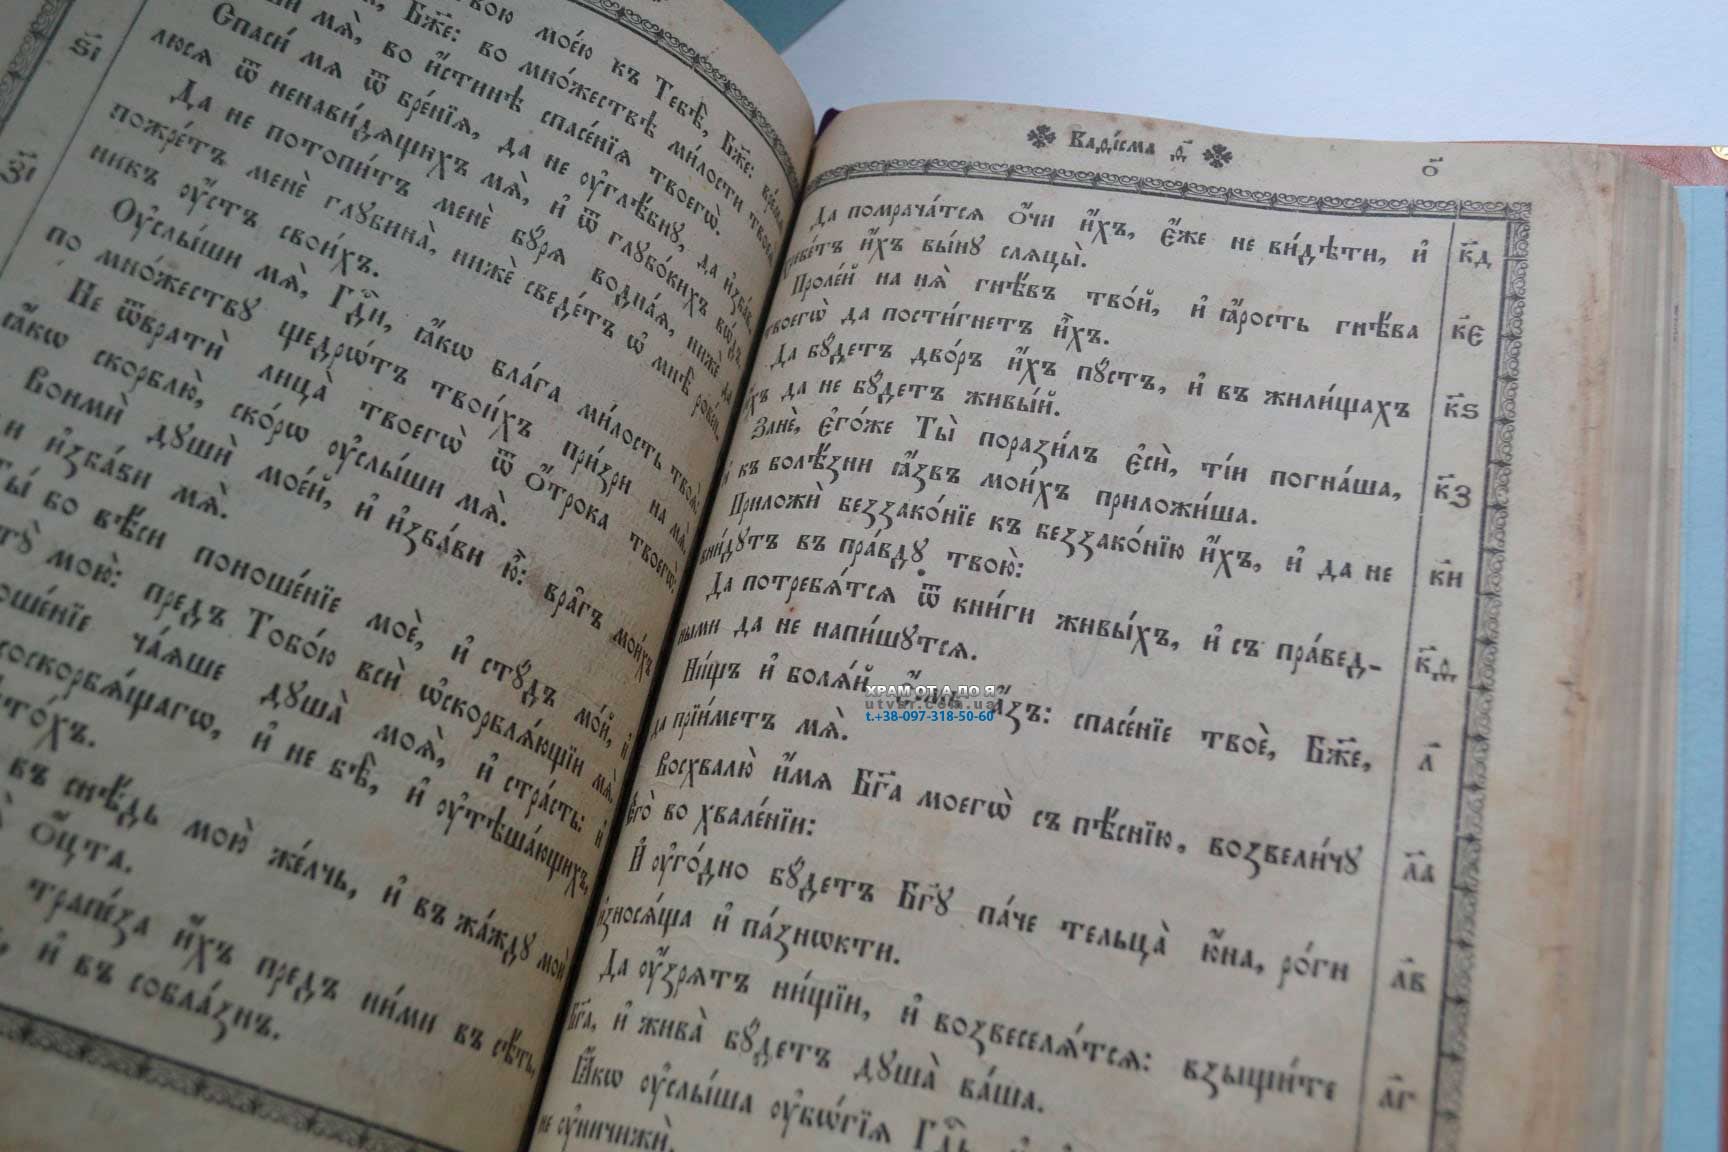 вою моею къ Тебѣ, Бж҃е: время
Бж҃е: во мно́жествѣ ми́лости твоея̀
мѧ̀, во и҆́стинѣ спасе́нїѧ твоегѡ̀.
ѕ҃і
Спаси́ мѧ ѿ бре́нїѧ, да не ᲂу҆глѣ́бнꙋ, да и҆зба́в-
люсѧ ѿ ненави́дѧщихъ мѧ̀, и҆ ѿ глꙋбо́кихъ во́дъ.
з҃і
Да не потопи́тъ менѐ бꙋ́рѧ воднаѧ, нижѐ да
пожре́тъ менѐ глꙋбина̀, нижѐ сведе́тъ ѡ҆ мнѣ̀ рове́н-
никъ ᲂу҆́стъ свои́хъ.
Оу҆слы́ши мѧ̀, Гдⷭ҇и, ꙗ҆́кѡ бла́га ми́лость твоѧ̀:
по мно́жествꙋ щедрѡ́тъ твои́хъ при́зри на мѧ̀.
Не ѿвратѝ лица̀ твоегѡ̀ ѿ О҆́трока твоегѡ̀:
ꙗ҆́кѡ скорблю̀, ско́рѡ ᲂу҆слы́ши мѧ̀.
Вонмѝ дꙋшѝ мое́й, и҆ и҆зба́ви ю҆̀: вра̑гъ мои́хъ
и и҆зба́ви мѧ̀.
Ты́ бо вѣ́си поноше́нїе моѐ, и҆ стꙋ́дъ мо́й, и҆
мою̀: предъ Тобо́ю всѝ ѡ҆скорблѧ́ющїи мѧ̀.
оше́нїе ча́ѧше дꙋша̀ моѧ̀, и҆ стра́сть: и҆
соскорбѧ́щагѡ, и҆ не бѣ̀, и҆ ᲂу҆тѣша́ющихъ,
то́хъ.
въ снѣ́дь мою̀ же́лчь, и҆ въ жа́ждꙋ мою̀
о҆́цта.
трапе́за и҆́хъ предъ ни́ми въ сѣ́ть,
и҆ въ собла́знъ.
Каѳі́сма д҃
о҃
Да помрача́тсѧ о҆́чи и҆́хъ, є҆́же не ви́дѣти, и҆ к҃д
хребе́тъ и҆́хъ вы́нꙋ слѧцы̀.
Проле́й на нѧ̀ гнѣ́въ тво́й, и҆ ꙗ҆́рость гнѣ́ва к҃є
твоегѡ̀ да пости́гнетъ и҆̀хъ.
Да бꙋ́детъ дво́ръ и҆́хъ пꙋ́стъ, и҆ въ жили́щахъ к҃ѕ
и҆́хъ да не бꙋ́детъ живы́й.
Занѐ, є҆го́же Ты̀ порази́лъ є҆сѝ, ті́и погна́ша, к҃з
и҆ къ болѣ́зни ꙗ҆́звъ мои́хъ приложи́ша.
Приложѝ беззако́нїе къ беззако́нїю и҆́хъ, и҆ да не к҃и
вни́дꙋтъ въ пра́вдꙋ твою̀:
Да потребѧ́тсѧ ѿ кни́ги живы́хъ, и҆ съ пра́вед- к҃ѳ
ными да не напи́шꙋтсѧ.
Ни́щъ и҆ болѧ́й є҆́смь а҆́зъ: спасе́нїе твоѐ, Бж҃е, л҃
да прїи́метъ мѧ̀.
ХРАМ ОТ А ДО Я
utvar.com.ua
t.+38-097-318-50-60
Восхвалю̀ и҆́мѧ Бг҃а моегѡ̀ съ пѣ́снїю, возвели́чꙋ л҃а
Его̀ во хвале́нїи:
И҆ ᲂу҆го́дно бꙋ́детъ Бг҃ꙋ па́че тельца̀ ю҆́на, ро́ги л҃в
и҆знося́ща и҆ па́знѡкти.
Да ᲂу҆́зрѧтъ ни́щїи, и҆ возвеселѧ́тсѧ: взыщи́те л҃г
Бг҃а, и҆ жива̀ бꙋ́детъ дꙋша̀ ва́ша.
Ꙗ҆́кѡ ᲂу҆слы́ша ᲂу҆бѡ́гїѧ Гдⷭ҇ь, и҆
не ᲂу҆ничижѝ.